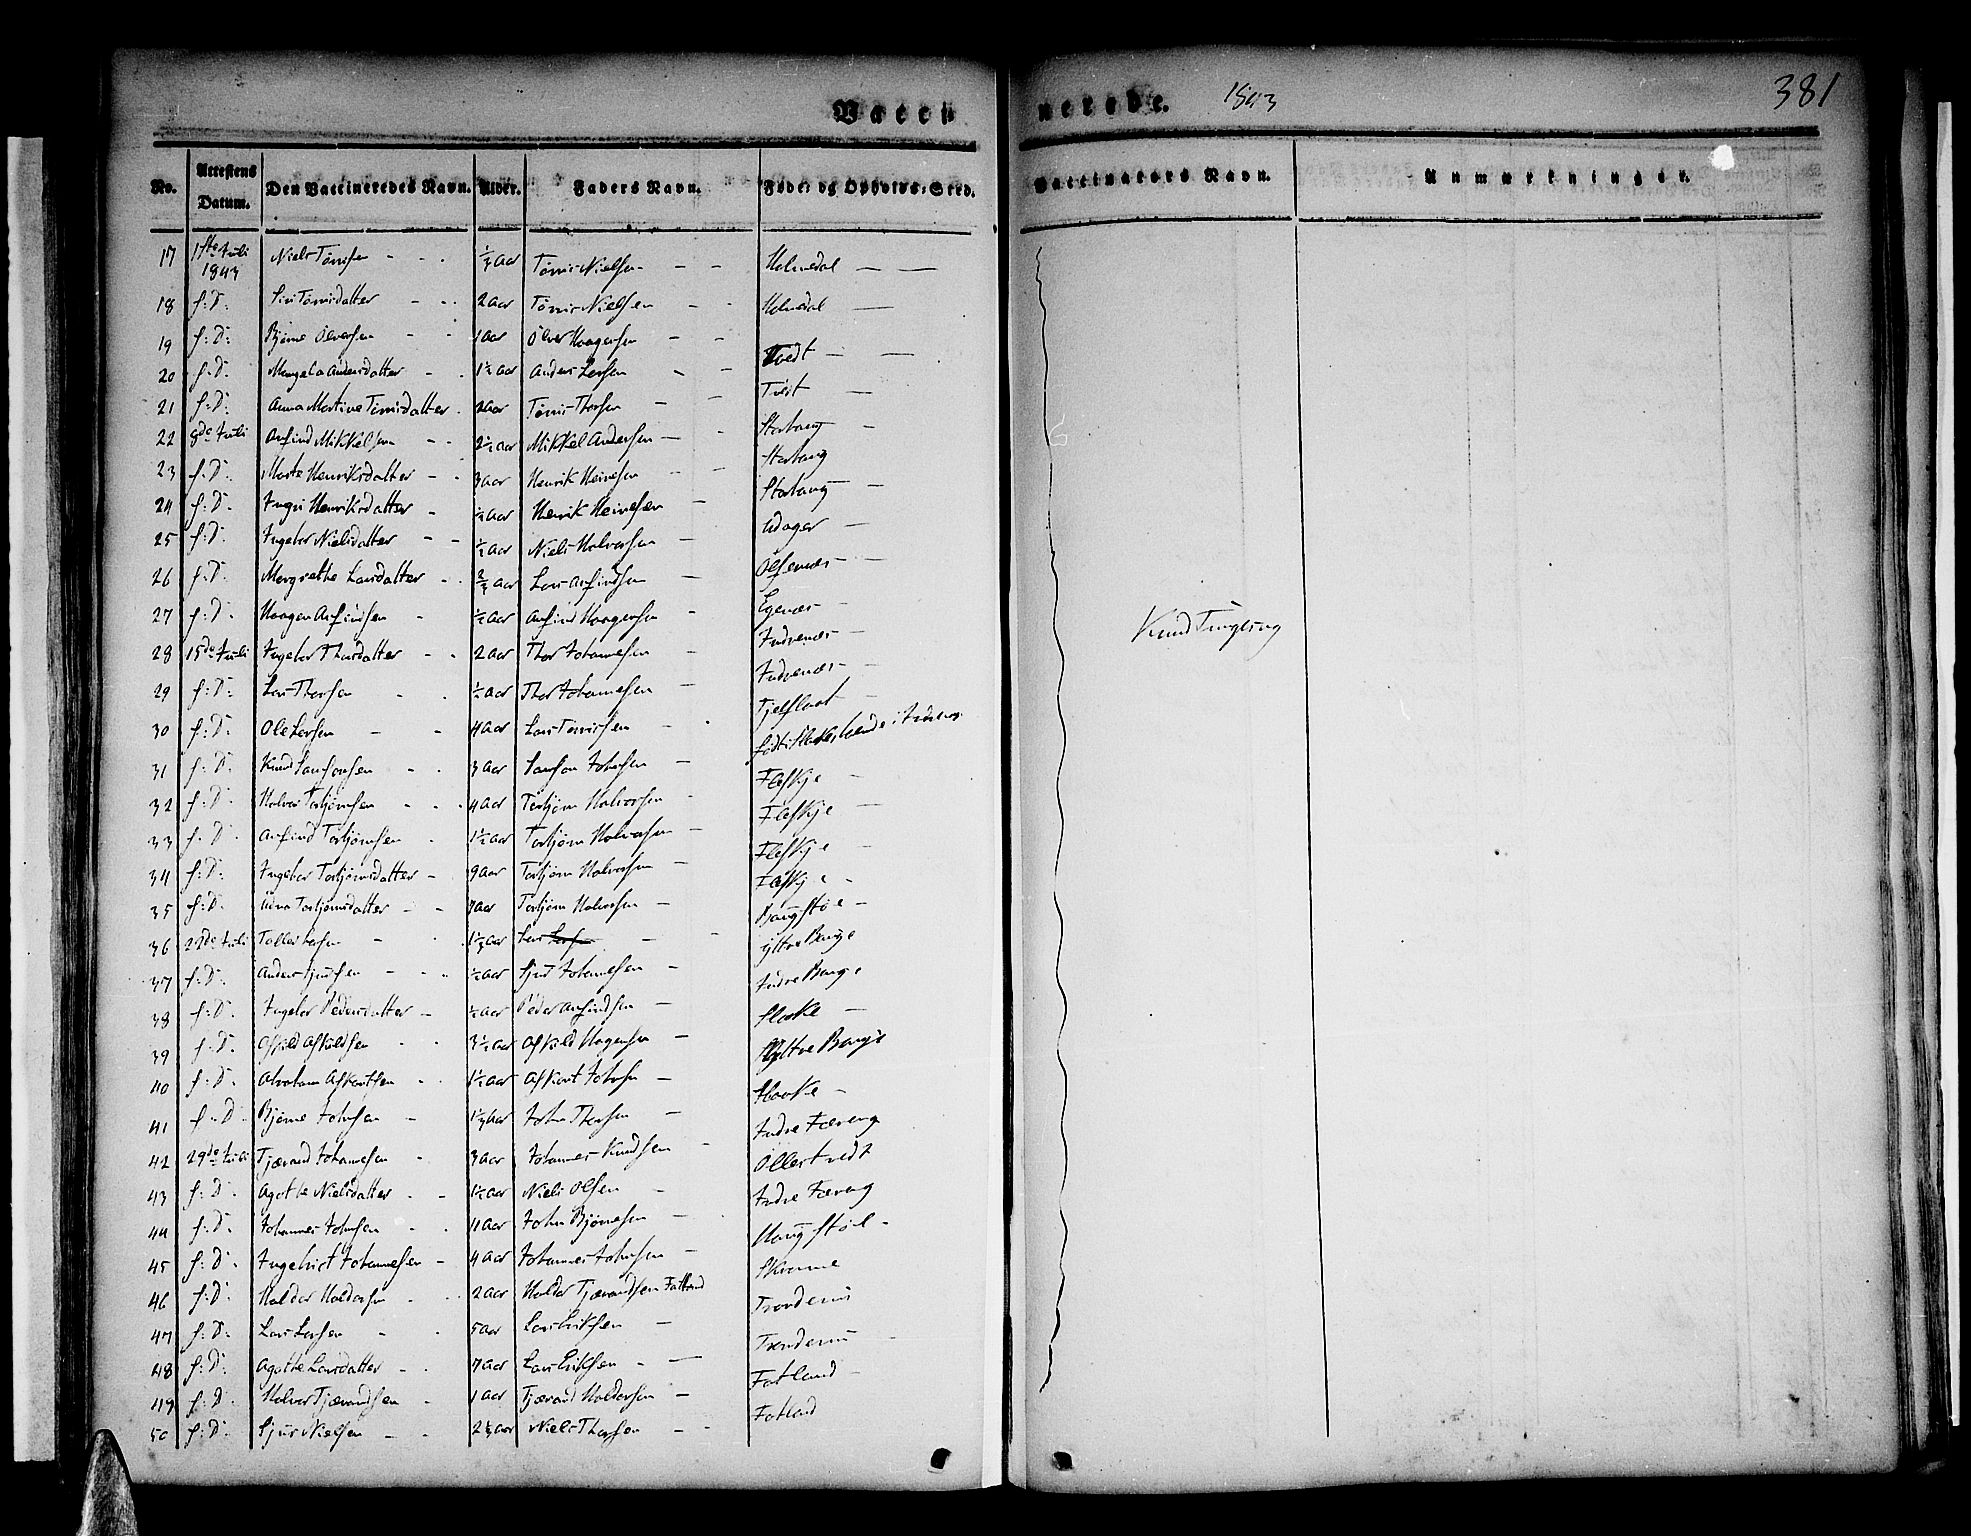 Vacci nerede. 1843 381
No. Attestens Datum. Den Vaccineredes Navn. Alder. Faders Navn. Føde- og Opholds-Sted. Vaccinators Navn. Anmærkninger.
17 1ste Juli 1843 Niels Tønnisen ⅓ Aar Tønnis Nielsen Holmedal
18 f: D: Siri Tønnisdatter 2 Aar Tønnis Nielsen Holmedal
19 f: D: Bjørne Ølversen 1 Aar Ølver Haagensen Tvedt
20 f: D: Mangela Andersdatter 1½ Aar Anders Larsen Tvedt
21 f: D: Anna Martine Tønnisdatter 2 Aar Tønnis Thorsen Starberg
22 8de Juli Arfind Mikkelsen 2½ Aar Mikkel Andersen Starberg
23 f: D: Marte Henriksdatter 3 Aar Henrik Heinesen Starberg
24 f: D: Ingri Henriksdatter ½ Aar Henrik Heinesen
25 f: D: Ingebor Nielsdatter ½ Aar Niels Halvorsen Ølfernæs
26 f: D: Margrethe Larsdatter ⅔ Aar Lars Arfindsen Egenæs
27 f: D: Haagen Arfindsen ½ Aar Arfind Haagensen Indrenæs
28 15de Juli Ingebor Thorsdatter 2 Aar Thor Johannesen Indrenæs
29 f: D: Lars Thorsen ½ Aar Thor Johannesen Tjelflaat
30 f: D: Ole Larsen 4 Aar Lars Tønnisen født i
31 f: D: Knud Samsonsen 3 Aar Samson Johnsen Fleskje
32 f: D: Halvor Torbjørnsen 4 Aar Torbjørn Halvorsen Fleskje
33 f: D: Arfind Torbjørnsen 1½ Aar Torbjørn Halvorsen Fleskje
34 f: D: Ingebor Torbjørnsdatter 9 Aar Torbjørn Halvorsen Fleskje
35 f: D: Udna Torbjørnsdatter 7 Aar Torbjørn Halvorsen Haugstøl
36 22de Juli Tollef Larsen 1⅓ Aar Lars Larsen Yttre Bauge
37 f: D: Anders Sjursen ½ Aar Sjur Johannesen Indre Bauge
38 f: D: Ingebor Pedersdatter ½ Aar Peder Arfindsen Haake
39 f: D: Askild Askildsen 3½ Aar Askild Hagensen Yttre Bauge
40 f: D: Abraham Askoutsen 1½ Aar Askout Johnsen Haake
41 f: D: Bjørne Johnsen 1⅓ Aar John Thorsen Indre Tæreng
42 29de Juli Tjærand Johannesen 3 Aar Johannes Knudsen Øllestvedt
43 f: D: Agathe Nielsdatter 1½ Aar Niels Olsen Indre Tæreng
44 f: D: Johannes Johnsen 11 Aar John Bjørnesen Haugstøl
45 f: D: Ingebrict Johannesen 4 Aar Johannes Johnsen Skromme
46 f: D: Haldor Haldorsen 2 Aar Haldor Tjærandsen Fatland
47 f: D: Lars Larsen 5 Aar Lars Eriksen
48 f: D: Agathe Larsdatter 7 Aar Lars Eriksen Fatland
49 f: D: Halvor Tjærandsen 1 Aar Tjærand Haldorsen Fatland
50 f: D: Sjur Nielsen 2⅓ Aar Niels Thorsen
Knud Tungesvig